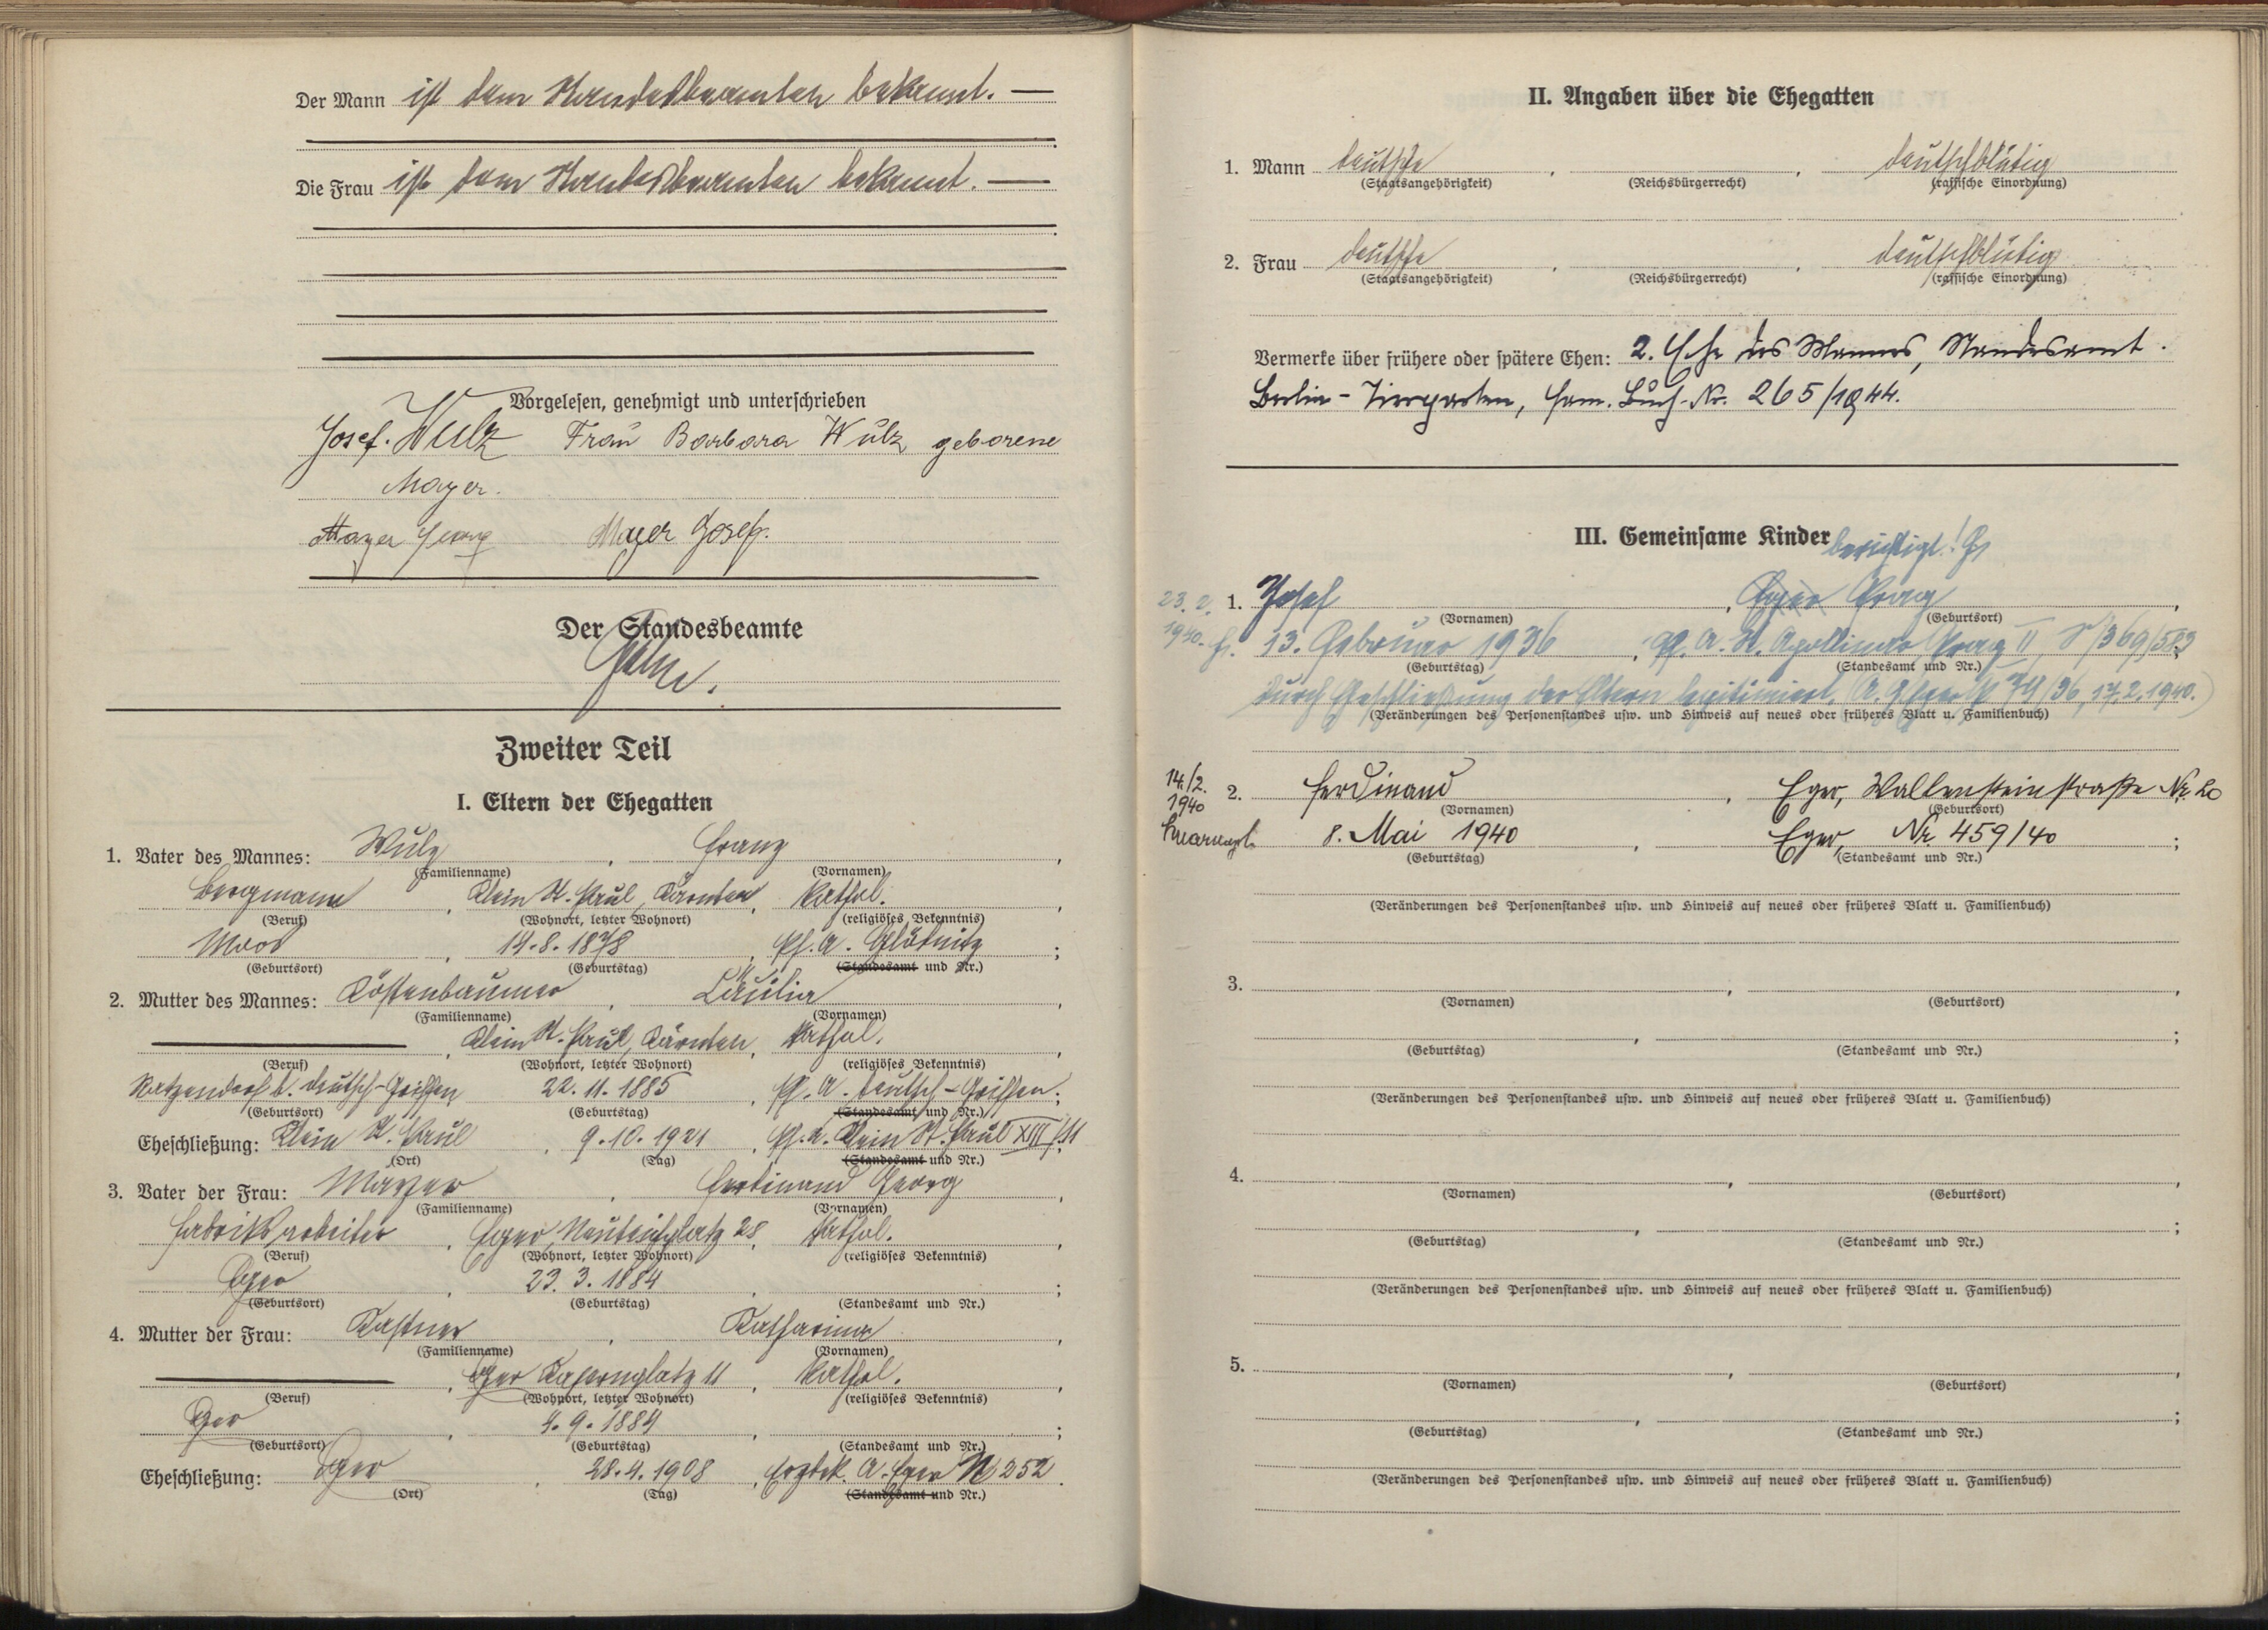 Der Mann ist dem Standesbeamten bekannt. —
Die Frau ist dem Standesbeamten bekannt. —
Vorgelesen, genehmigt und unterschrieben
Josef Wulz Frau Barbara Wulz geborene
Mayer.
Mayer Georg Mayer Josef.
Der Standesbeamte
Zweiter Teil
I. Eltern der Ehegatten
1. Vater des Mannes: Wulz, Franz,
(Familienname) (Vornamen)
Bergmann, Klein St. Paul, Kärnten, kathol.,
(Beruf) (Wohnort, letzter Wohnort) (religiöses Bekenntnis)
Moos, 14.8.1878, Pf. A. Glödnitz;
(Geburtsort) (Geburtstag) (Standesamt und Nr.)
2. Mutter des Mannes: Köstenbaumer, Cäcilia,
(Familienname) (Vornamen)
—, Klein St. Paul, Kärnten, kathol.,
(Beruf) (Wohnort, letzter Wohnort) (religiöses Bekenntnis)
b. Deutsch-Griffen 22.11.1885, Pf. A. Deutsch-Griffen;
(Geburtsort) (Geburtstag) (Standesamt und Nr.)
Eheschließung: Klein St. Paul, 9.10.1921, Pf. A. Klein St. Paul XIII/11
(Ort) (Tag) (Standesamt und Nr.)
3. Vater der Frau: Mayer, Ferdinand Georg,
(Familienname) (Vornamen)
Fabriksarbeiter, Eger, 28, kathol.,
(Beruf) (Wohnort, letzter Wohnort) (religiöses Bekenntnis)
Eger, 23.3.1884,;
(Geburtsort) (Geburtstag) (Standesamt und Nr.)
4. Mutter der Frau: Kastner, Katharina,
(Familienname) (Vornamen)
—, Eger Kasernplatz 11, kathol.,
(Beruf) (Wohnort, letzter Wohnort) (religiöses Bekenntnis)
Eger, 4.9.1884,;
(Geburtsort) (Geburtstag) (Standesamt und Nr.)
Eheschließung: Eger, 28.4.1908, Erzdek. A. Eger 252.
(Ort) (Tag) (Standesamt und Nr.)
II. Angaben über die Ehegatten
1. Mann deutsche,, deutschblütig
(Staatsangehörigkeit) (Reichsbürgerrecht) (rassische Einordnung)
2. Frau deutsche,, deutschblütig
(Staatsangehörigkeit) (Reichsbürgerrecht) (rassische Einordnung)
Vermerke über frühere oder spätere Ehen: 2. Ehe des Mannes, Standesamt
Berlin-Tiergarten, Fam. Buch-Nr. 265/1944.
III. Gemeinsame Kinder berichtigt!
23.2. 1. Josef, Eger Prag,
(Vornamen) (Geburtsort)
1940. 13. Februar 1936, Pf. A. St. Apollinar Prag II,
(Geburtstag) (Standesamt und Nr.)
durch Eheschließung der Eltern legitimiert. (A. G. Eger P 74/36, 17.2.1940.)
(Veränderungen des Personenstandes usw. und Hinweis auf neues oder früheres Blatt u. Familienbuch)
14./2. 1940 2. Ferdinand, Eger, Wallensteinstraße Nr. 20
(Vornamen) (Geburtsort)
8. Mai 1940, Eger, Nr. 459/40;
(Geburtstag) (Standesamt und Nr.)
(Veränderungen des Personenstandes usw. und Hinweis auf neues oder früheres Blatt u. Familienbuch)
3.,,
(Vornamen) (Geburtsort)
(Geburtstag) (Standesamt und Nr.)
(Veränderungen des Personenstandes usw. und Hinweis auf neues oder früheres Blatt u. Familienbuch)
4.,,
(Vornamen) (Geburtsort)
(Geburtstag) (Standesamt und Nr.)
(Veränderungen des Personenstandes usw. und Hinweis auf neues oder früheres Blatt u. Familienbuch)
5.,,
(Vornamen) (Geburtsort)
(Geburtstag) (Standesamt und Nr.)
(Veränderungen des Personenstandes usw. und Hinweis auf neues oder früheres Blatt u. Familienbuch)